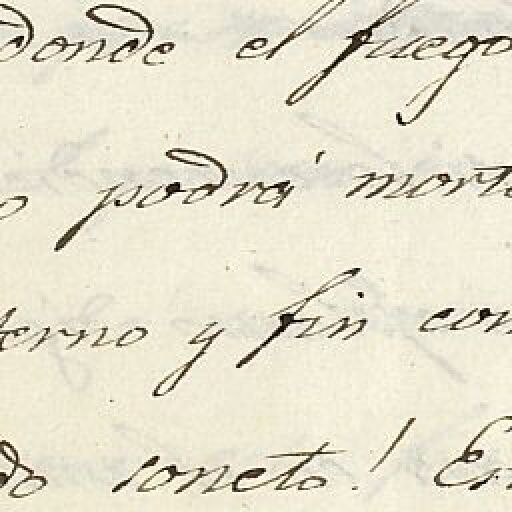 donde el fuego
o podrá mort
terno y fin con
do soneto! Es